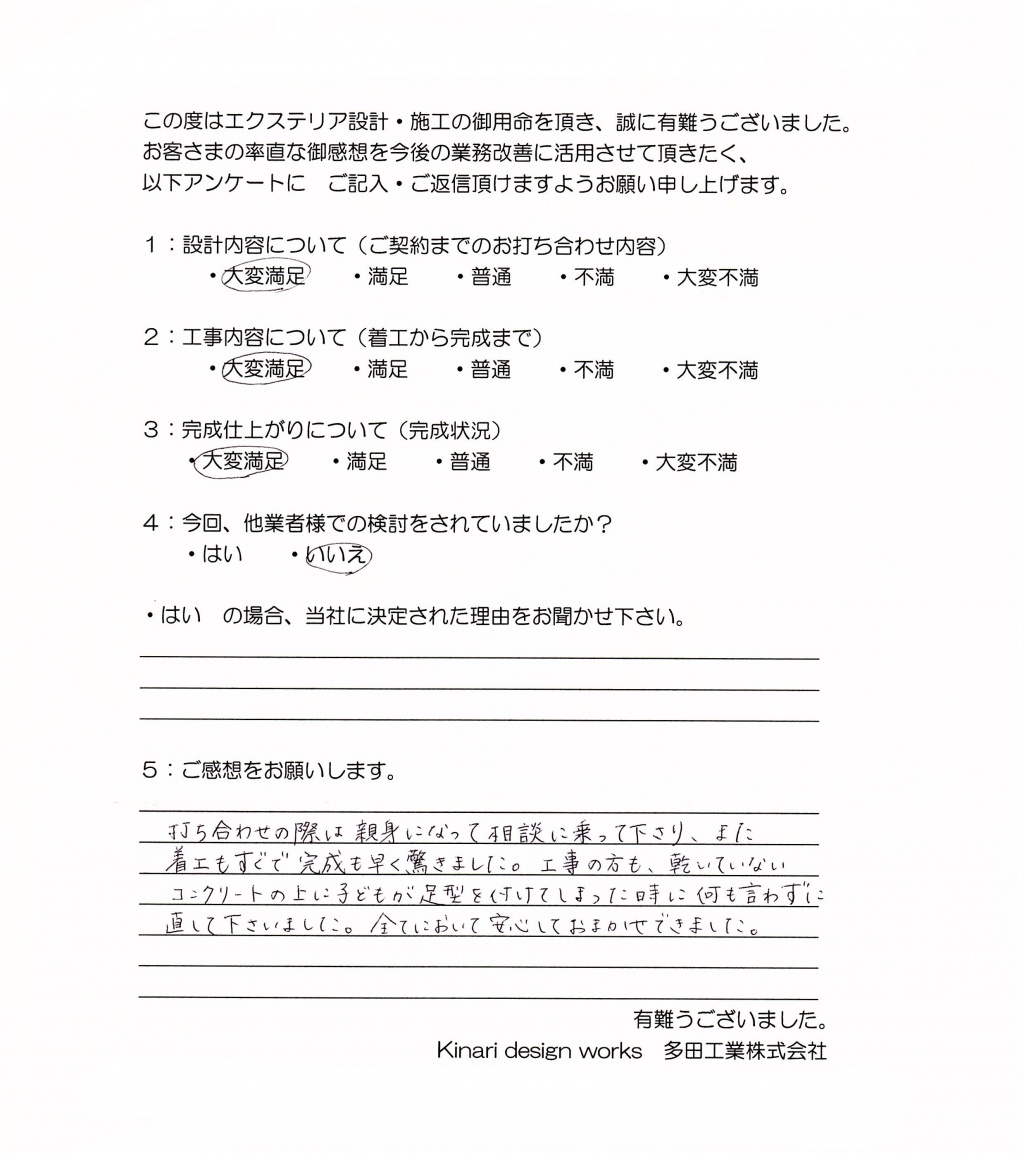 この度はエクステリア設計・施工の御用命を頂き、誠に有難うございました。
お客さまの率直な御感想を今後の業務改善に活用させて頂きたく、
以下アンケートに　ご記入・ご返信頂けますようお願い申し上げます。
１：設計内容について（ご契約までのお打ち合わせ内容）
・大変満足　・満足　・普通　・不満　・大変不満
２：工事内容について（着工から完成まで）
・大変満足　・満足　・普通　・不満　・大変不満
３：完成仕上がりについて（完成状況）
・大変満足　・満足　・普通　・不満　・大変不満
４：今回、他業者様での検討をされていましたか？
・はい　・いいえ
・はい　の場合、当社に決定された理由をお聞かせ下さい。
５：ご感想をお願いします。
打ち合わせの際は親身になって相談に乗って下さり、また
着工もすぐで完成も早く驚きました。工事の方も、乾いていない
コンクリートの上に子どもが足型を付けてしまった時に何も言わずに
直して下さいました。全てにおいて安心しておまかせできました。
有難うございました。
Kinari design works　多田工業株式会社